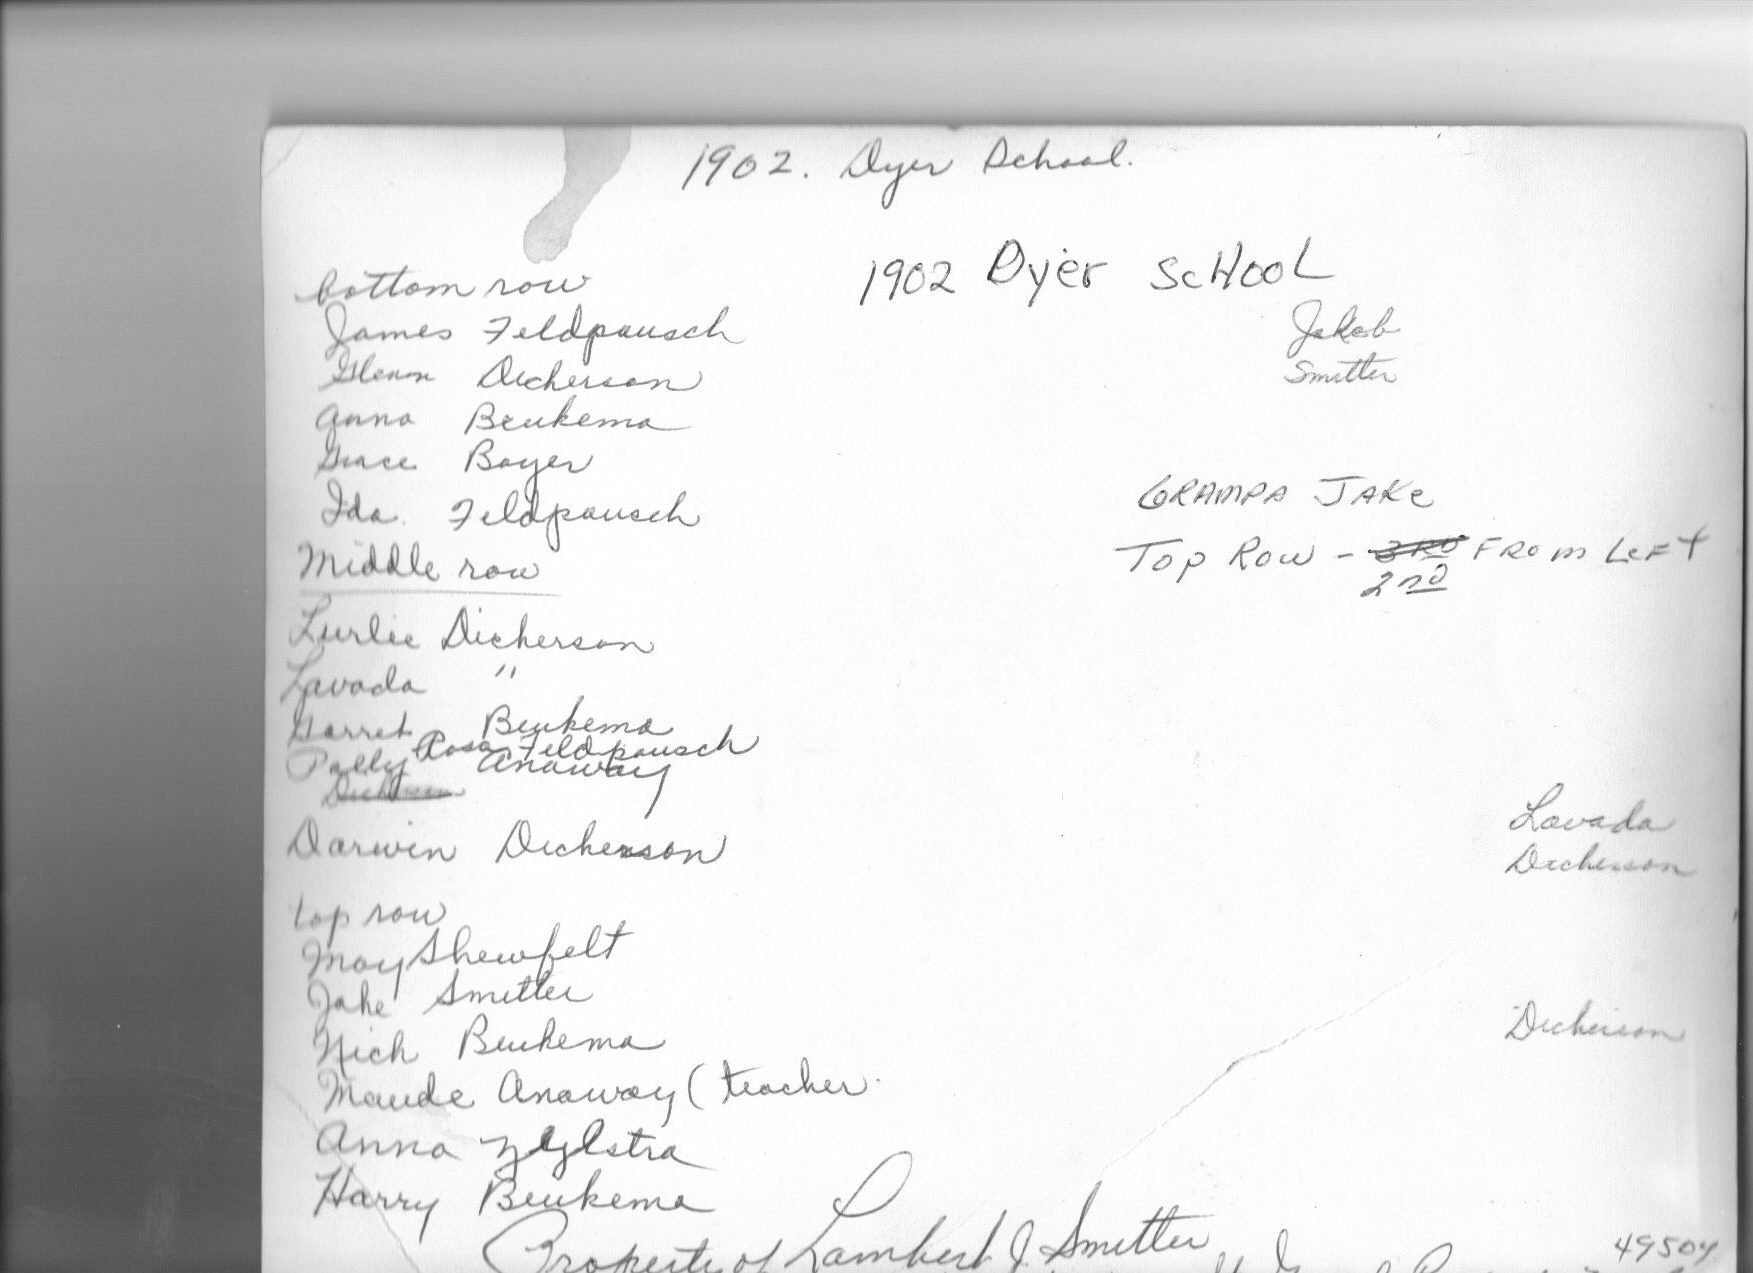 1902. Dyer School.
1902 Dyer SCHOOL
bottom row
James Feldpausch
Jakob
Glenn Dickerson
Smitter
Anna Beukema
Grace Boyer
Ida Feldpausch
GRAMPA JAKE
Middle row
TOP ROW - 3RD FROM LEFT
2nd
Lurlie Dickerson
Lavada "
Garret Beukema
Rosa Feldpausch
Polly Anaway
Lavada
Darwin Dickerson
Dickerson
top row
May Shewfelt
Jake Smitter
Dickerson
Nick Beukema
Maude Anaway (teacher
Anna Zylstra
Harry Beukema
Property of Lambert J. Smitter
49504